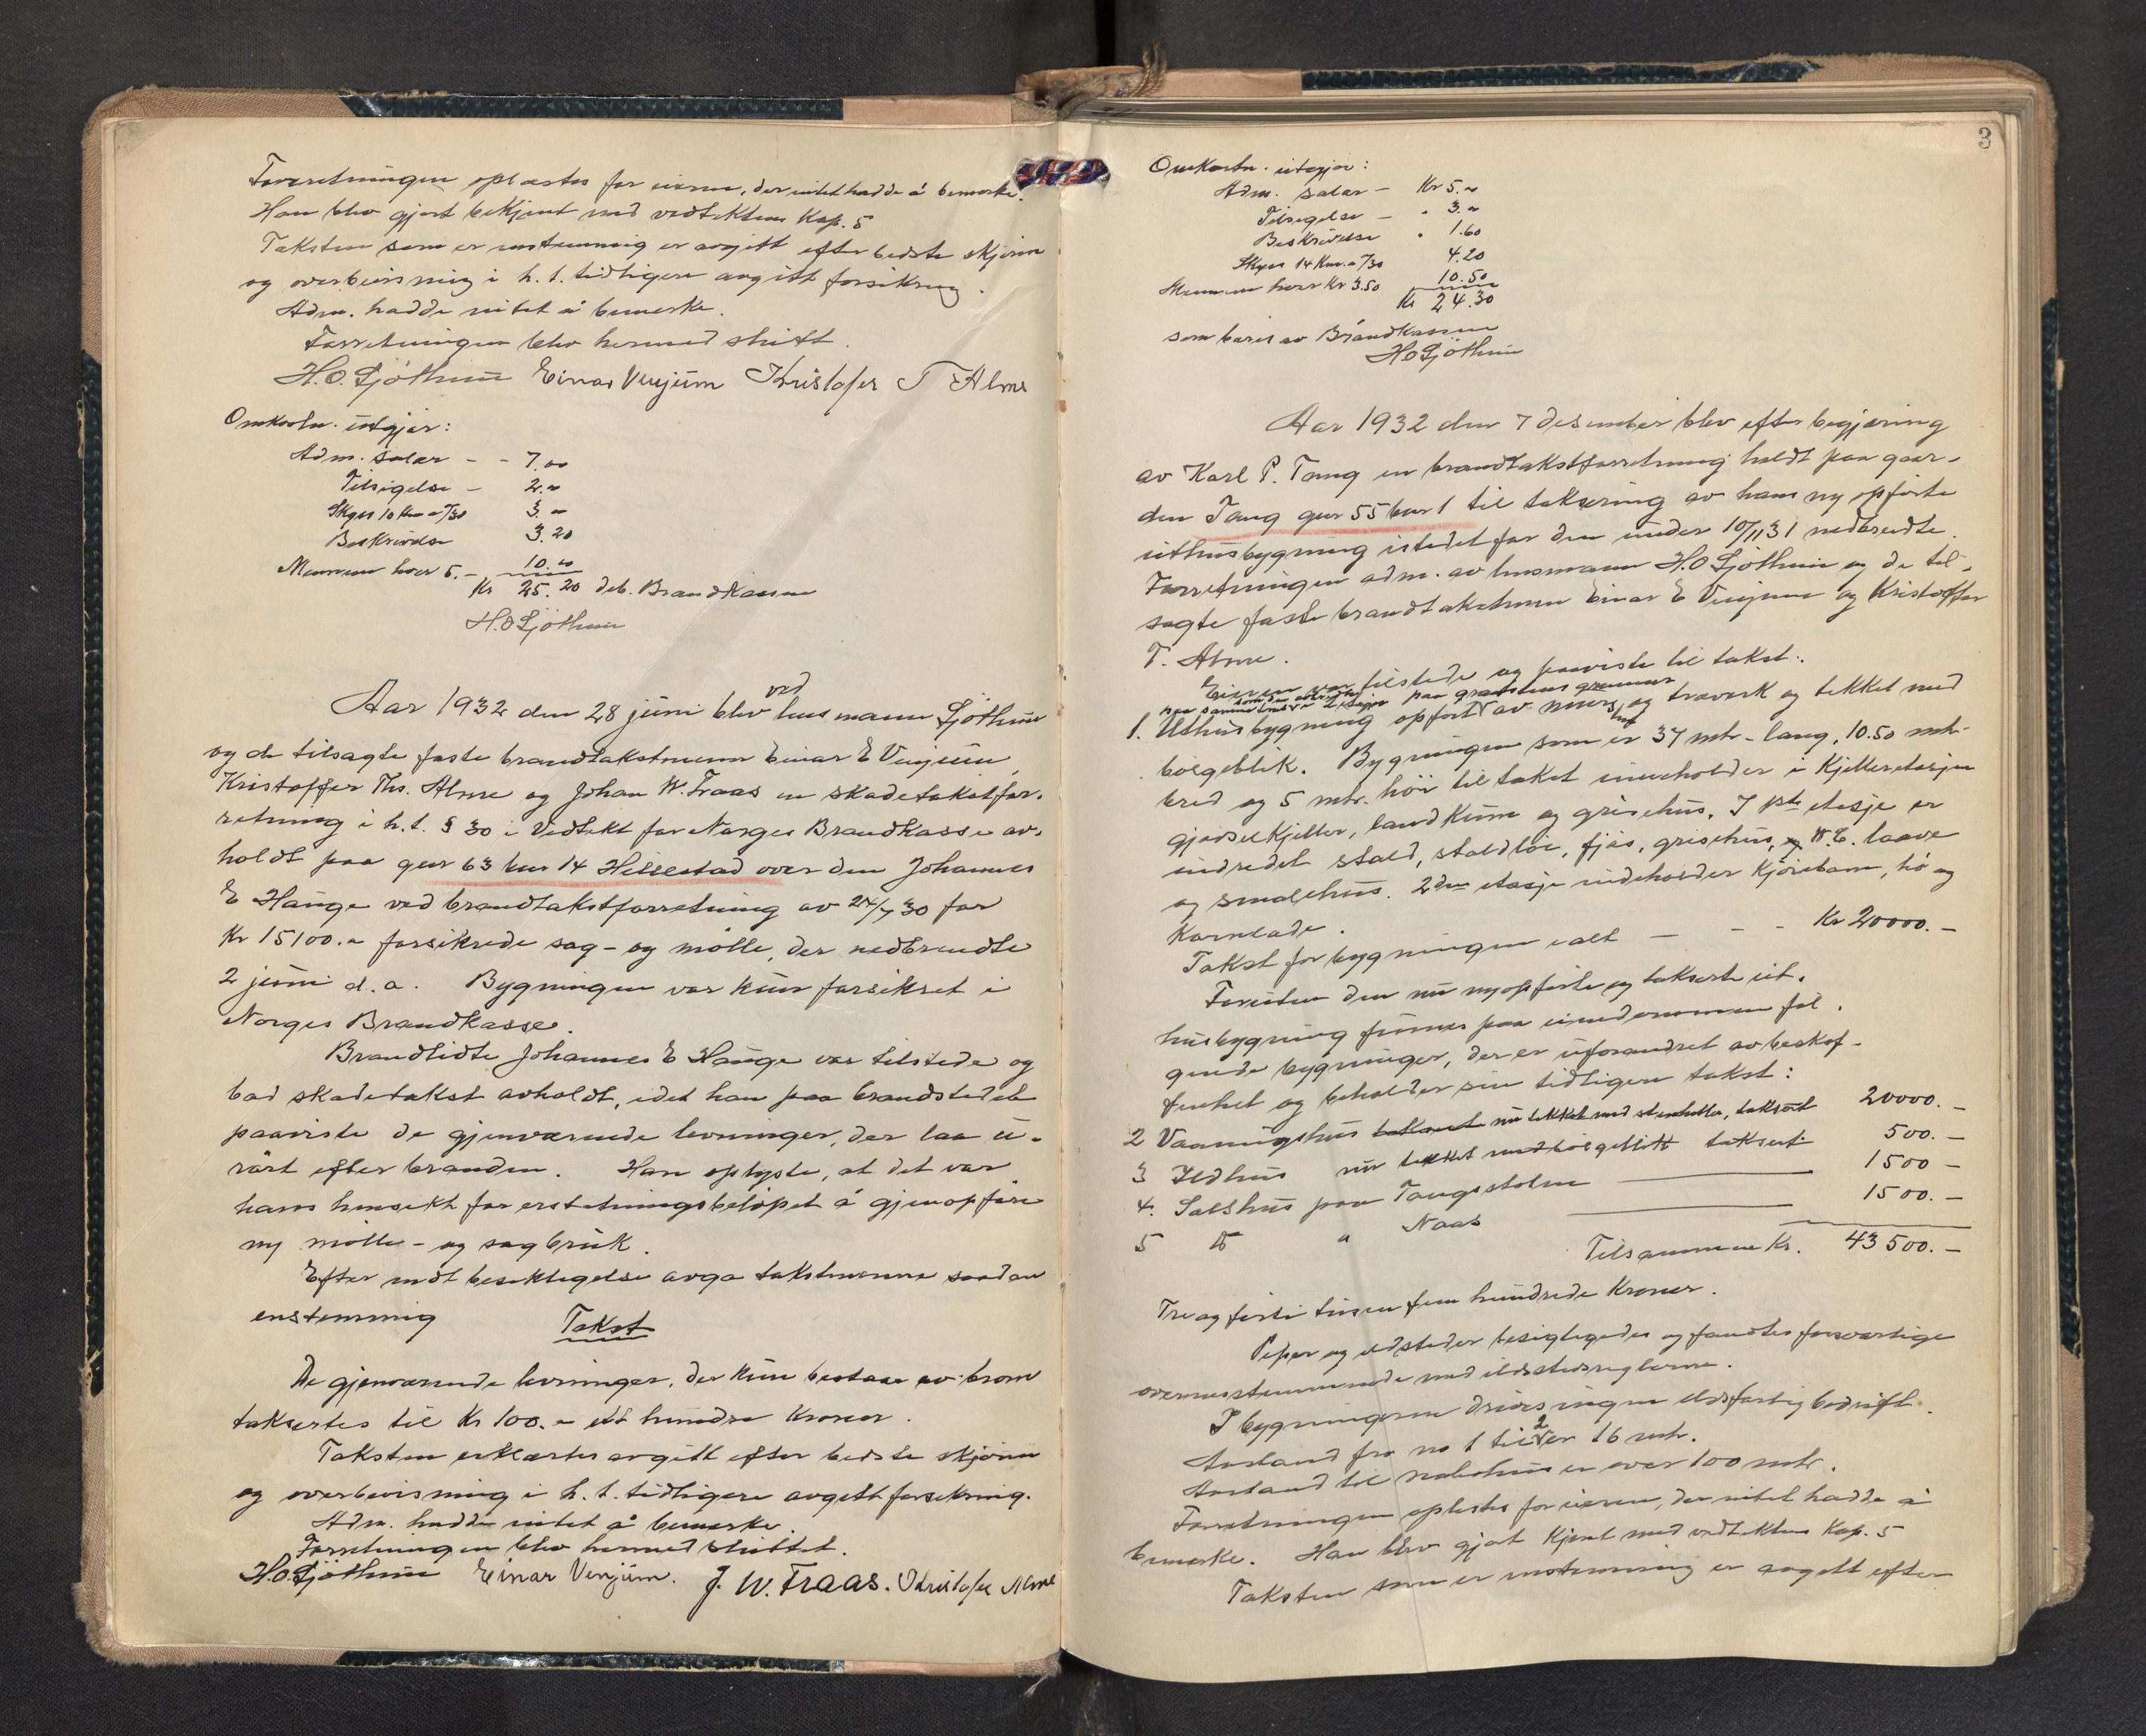 Forretningen oplæstes for eieren, der intet hadde å bemerke.
Han blev gjort bekjent med vedtektens Kap. 5
Taksten som er enstemmig er avgitt efter bedste skjønn
og overbevisning i h. t. tidligere avgitt forsikring.
Adm. hadde intet å bemerke.
Forretningen blev hermed sluttt.
H.O. Sjøthun Einar Venjum Kristofer T Alme
Omkostn. utgjør:
Adm. salær - - 7.00
Tilsigelse - 2.-
Skyss 10 km a -/30 3.-
Beskrivelse 3.20
Mennene hver 5.- 10.00
Kr 25.20 deb. Brandkassen
H.O Sjøthun
Aar 1932 den 28 juni blev ved lensmann Sjøthun
og de tilsagte faste brandtakstmenn Einar E Venjum,
Kristoffer Ths. Alme og Johan W. Fraas en skadetakstfor-
retning i h.t. § 30 i Vedtekt for Norges Brandkasse av-
holdt paa gnr 63 bnr 14 Hillestad over den Johannes
E Hauge ved brandtakstforretning av 24/7 30 for
Kr 15100.- forsikrede sag- og mølle, der nedbrendte
2 juni d.a. Bygningen var kun forsikret i
Norges Brandkasse.
Brandlidte Johannes E Hauge var tilstede og
bad skadetakst avholdt, idet han paa brandstedet
paaviste de gjenværende levninger, der laa u-
rørt efter branden. Han oplyste, at det var
hans hensikt for erstatningsbeløpet å gjenopføre
ny mølle- og sagbruk.
Efter endt besiktigelse avga takstmennene saadan
enstemmig Takst
De gjenværende levninger, der kun bestaar av jern
taksertes til Kr 100.- ett hundre Kroner.
Taksten erklærtes avgitt efter bedste skjønn
og overbevisning i h. t. tidligere avgitt forsikring.
Adm. hadde intet å bemerke.
Forretningen blev hermed sluttet.
H.O. Sjøthun Einar Venjum. J. W. Fraas. Kristofer Alme
3
Omkostn. utgjør:
Adm. salær - Kr 5.-
Tilsigelse - " 3.-
Beskrivelse " 1.60
Skyss 14 Km. a -/30 4.20
Mennene hver Kr 3.50 10.50
Kr 24.30
som bæres av Brandkassen
H.O Sjøthun
Aar 1932 den 7 desember blev efter begjæring
av Karl P. Tang en brandtakstforretning holdt paa gaar-
den Tang gnr 55 bnr 1 til taksering av hans ny opførte
uthusbygning istedet for den under 10/11 31 nedbrendte.
Forretningen adm. av lensmann H.O Sjøthun og de til-
sagte faste brandtakstmenn Einar E Venjum og Kristoffer
T. Alme.
Eieren var tilstede og paaviste til takst:
paa samme sted som den nedbrendte 2 etasjer paa graastens grunmur
1. Uthusbygning opført av mur og træverk og tekket med
bølgeblik. Bygningen som er 37 mtr. lang, 10.50 mtr.
bred og 5 mtr. høi til taket inneholder i Kjelleretasjen
gjødselkjeller, landkum og grisehus. I 1ste etasje er
indredet stald, staldløe, fjøs, grisehus, W.C. laave
og smalehus. 2den etasje indeholder Kjørebane, hø og
Kornlade.
Takst for bygningen ialt - - - Kr 20000.-
Foruten den nu nyopførte og takserte ut-
husbygning finnes paa eiendommen føl-
gende bygninger, der er uforandret av beskaf-
fenhet og beholder sin tidligere takst:
2 Vaaningshus nu tekket med stenheller, taksert 20000.-
3 Ildhus nu tekket med bølgeblikk taksert 500.-
4. Saltshus paa Tangsstølen 1500 -
5 do " Naas 1500.-
Tilsammen Kr. 43500.-
Tre ogførti tusen fem hundrede Kroner.
Piper og ildsteder besigtigedes og fandtes forsvarlige
overensstemmende med ildstedsreglerne.
I bygningerne drives ingen ildsfarlig bedrift.
Avstand fra no 1 til 2 er 16 mtr.
Avstand til nabohus er over 100 mtr.
Forretningen oplestes for eieren, der intet hadde å
bemerke. Han blev gjort kjent med vedtektens Kap. 5
Taksten som er enstemmig er avgitt efter